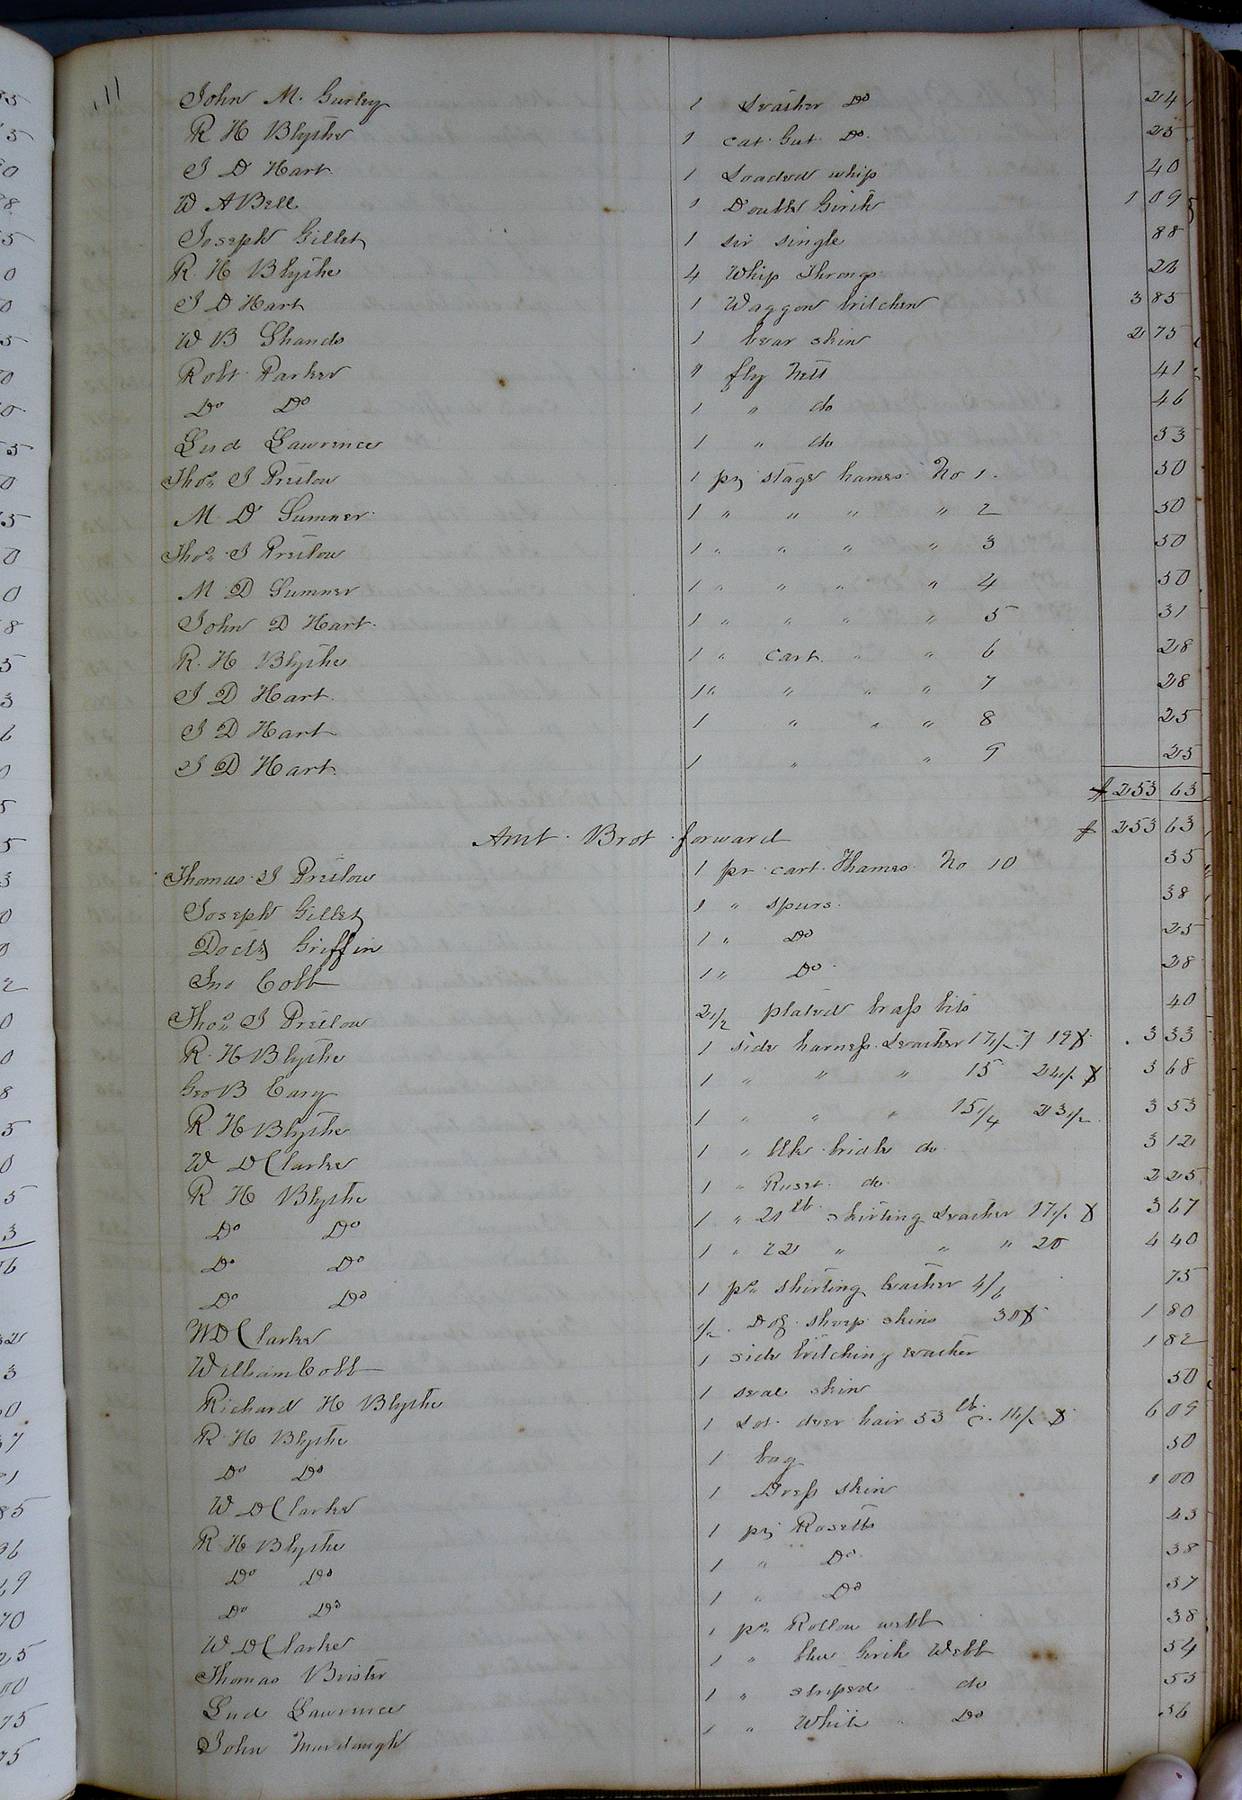 111
John M. Gurley 1 Leather Do 24
R H Blythe 1 cat Gut Do 25
J D Hart 1 Loaded whip 40
W A Bell 1 Double Girth 1 09
Joseph Gillet 1 sir single 88
R. H Blythe 4 Whip Throngs 28
J D Hart 1 Waggon britchen 3 85
W B Shands 1 bear skin 2 75
Robt Parker " fly Nett 41
Do Do 1 " do 46
Lud Lawrence 1 " do 53
Thos J Pretlow 1 pr stage hames No 1. 50
M D Sumner 1 " " " " 2 50
Thos J Pretlow 1 " " " " 3 50
M D Sumner 1 " " " " 4 50
John D Hart 1 " " " " 5 31
R. H Blythe 1 " cart " " 6 28
J D Hart 1 " " " " 7 28
J D Hart 1 " " " 8 25
J D Hart 1 " " 9 25
$ 253 63
Amt Brot forward $ 253 63
Thomas J Pretlow 1 pr cart Hames No 10 35
Joseph Gillet 1 " spurs 38
Doctr Griffin 1 " Do 25
Jno Cobb 1 " Do 28
Thos J Pretlow 2 1/2 plated brass bits 40
R. H Blythe 1 side harness Leather 17 1/2 19 3 33
Geo B Cary 1 " " " 15 24 1/2 3 68
R H Blythe 1 " " " 15 1/4 23 1/2 3 53
W D Clarke 1 " blk bridle do 3 12
R H Blythe 1 " Russt do 2 25
Do Do 1 " 21 lb skirting Leather 17 1/2 3 67
Do Do 1 " 22 " " " 20 4 40
Do Do 1 pr skirting Leather 4/6 75
W D Clarke 1/2 Doz sheep skins 30 1 80
William Cobb 1 side britching Leather 1 82
Richard H Blythe 1 seal skin 50
R H Blythe 1 Lot deer hair 53 lb 11 1/2 6 09
Do Do 1 bag 50
W D Clarke 1 Dress skin 1 00
R H Blythe 1 pr Rosetts 43
Do Do 1 " Do 38
Do Do 1 " Do 37
W D Clarke 1 pr webb 38
Thomas Brister 1 " blue Girth Webb 54
Lud Lawrence 1 " striped do 55
John Murdaugh 1 " White " Do 56